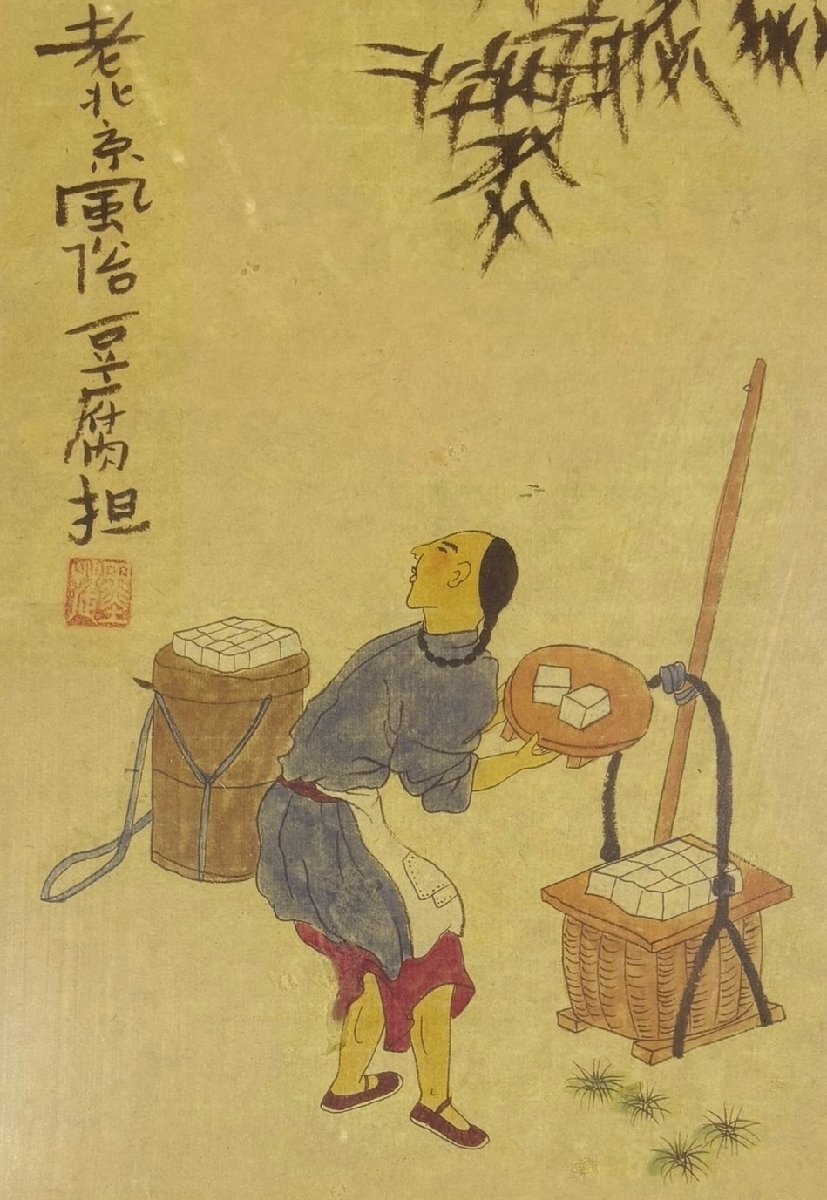 老北京風俗豆腐担